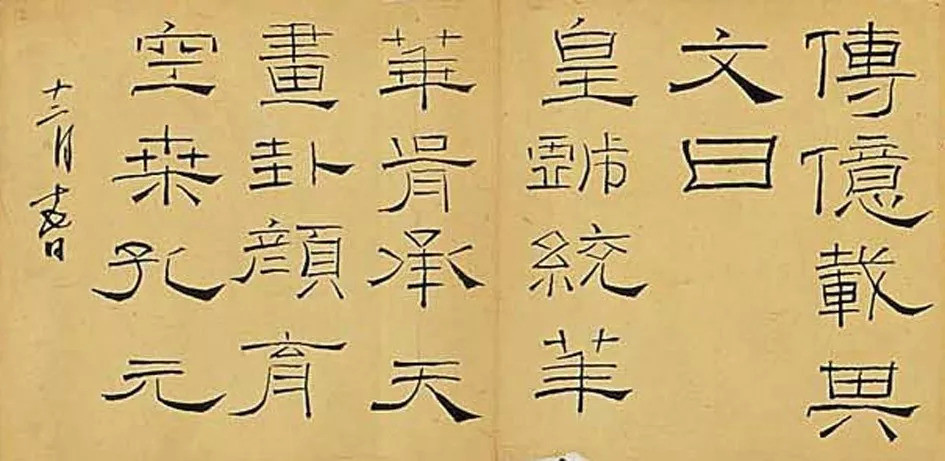 傳億載其
文曰
皇戲統
華胥承天
畫卦顏育
空桒孔元
十二月十五日